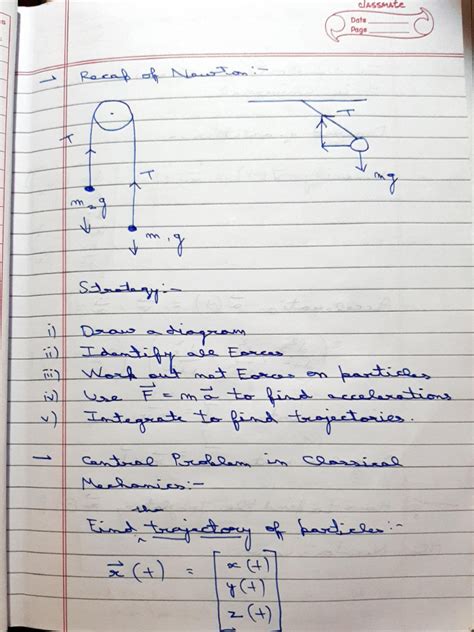 classmate
Date
Page
→ Recap of Newton:-
T
T
T
m₂g
m₁g
mg
Strategy:-
i) Draw a diagram
ii) Identify all Forces
iii) Work out net Forces on particles
iv) Use F⃗ = m a⃗ to find accelerations
v) Integrate to find trajectories.
→ Central Problem in Classical
Mechanics:-
the
Find ^ trajectory of particles:-
x⃗ (t) = [x(t)
y(t)
z(t)]